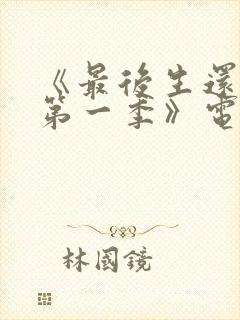 《最後生還
第一季》電
林國鏡